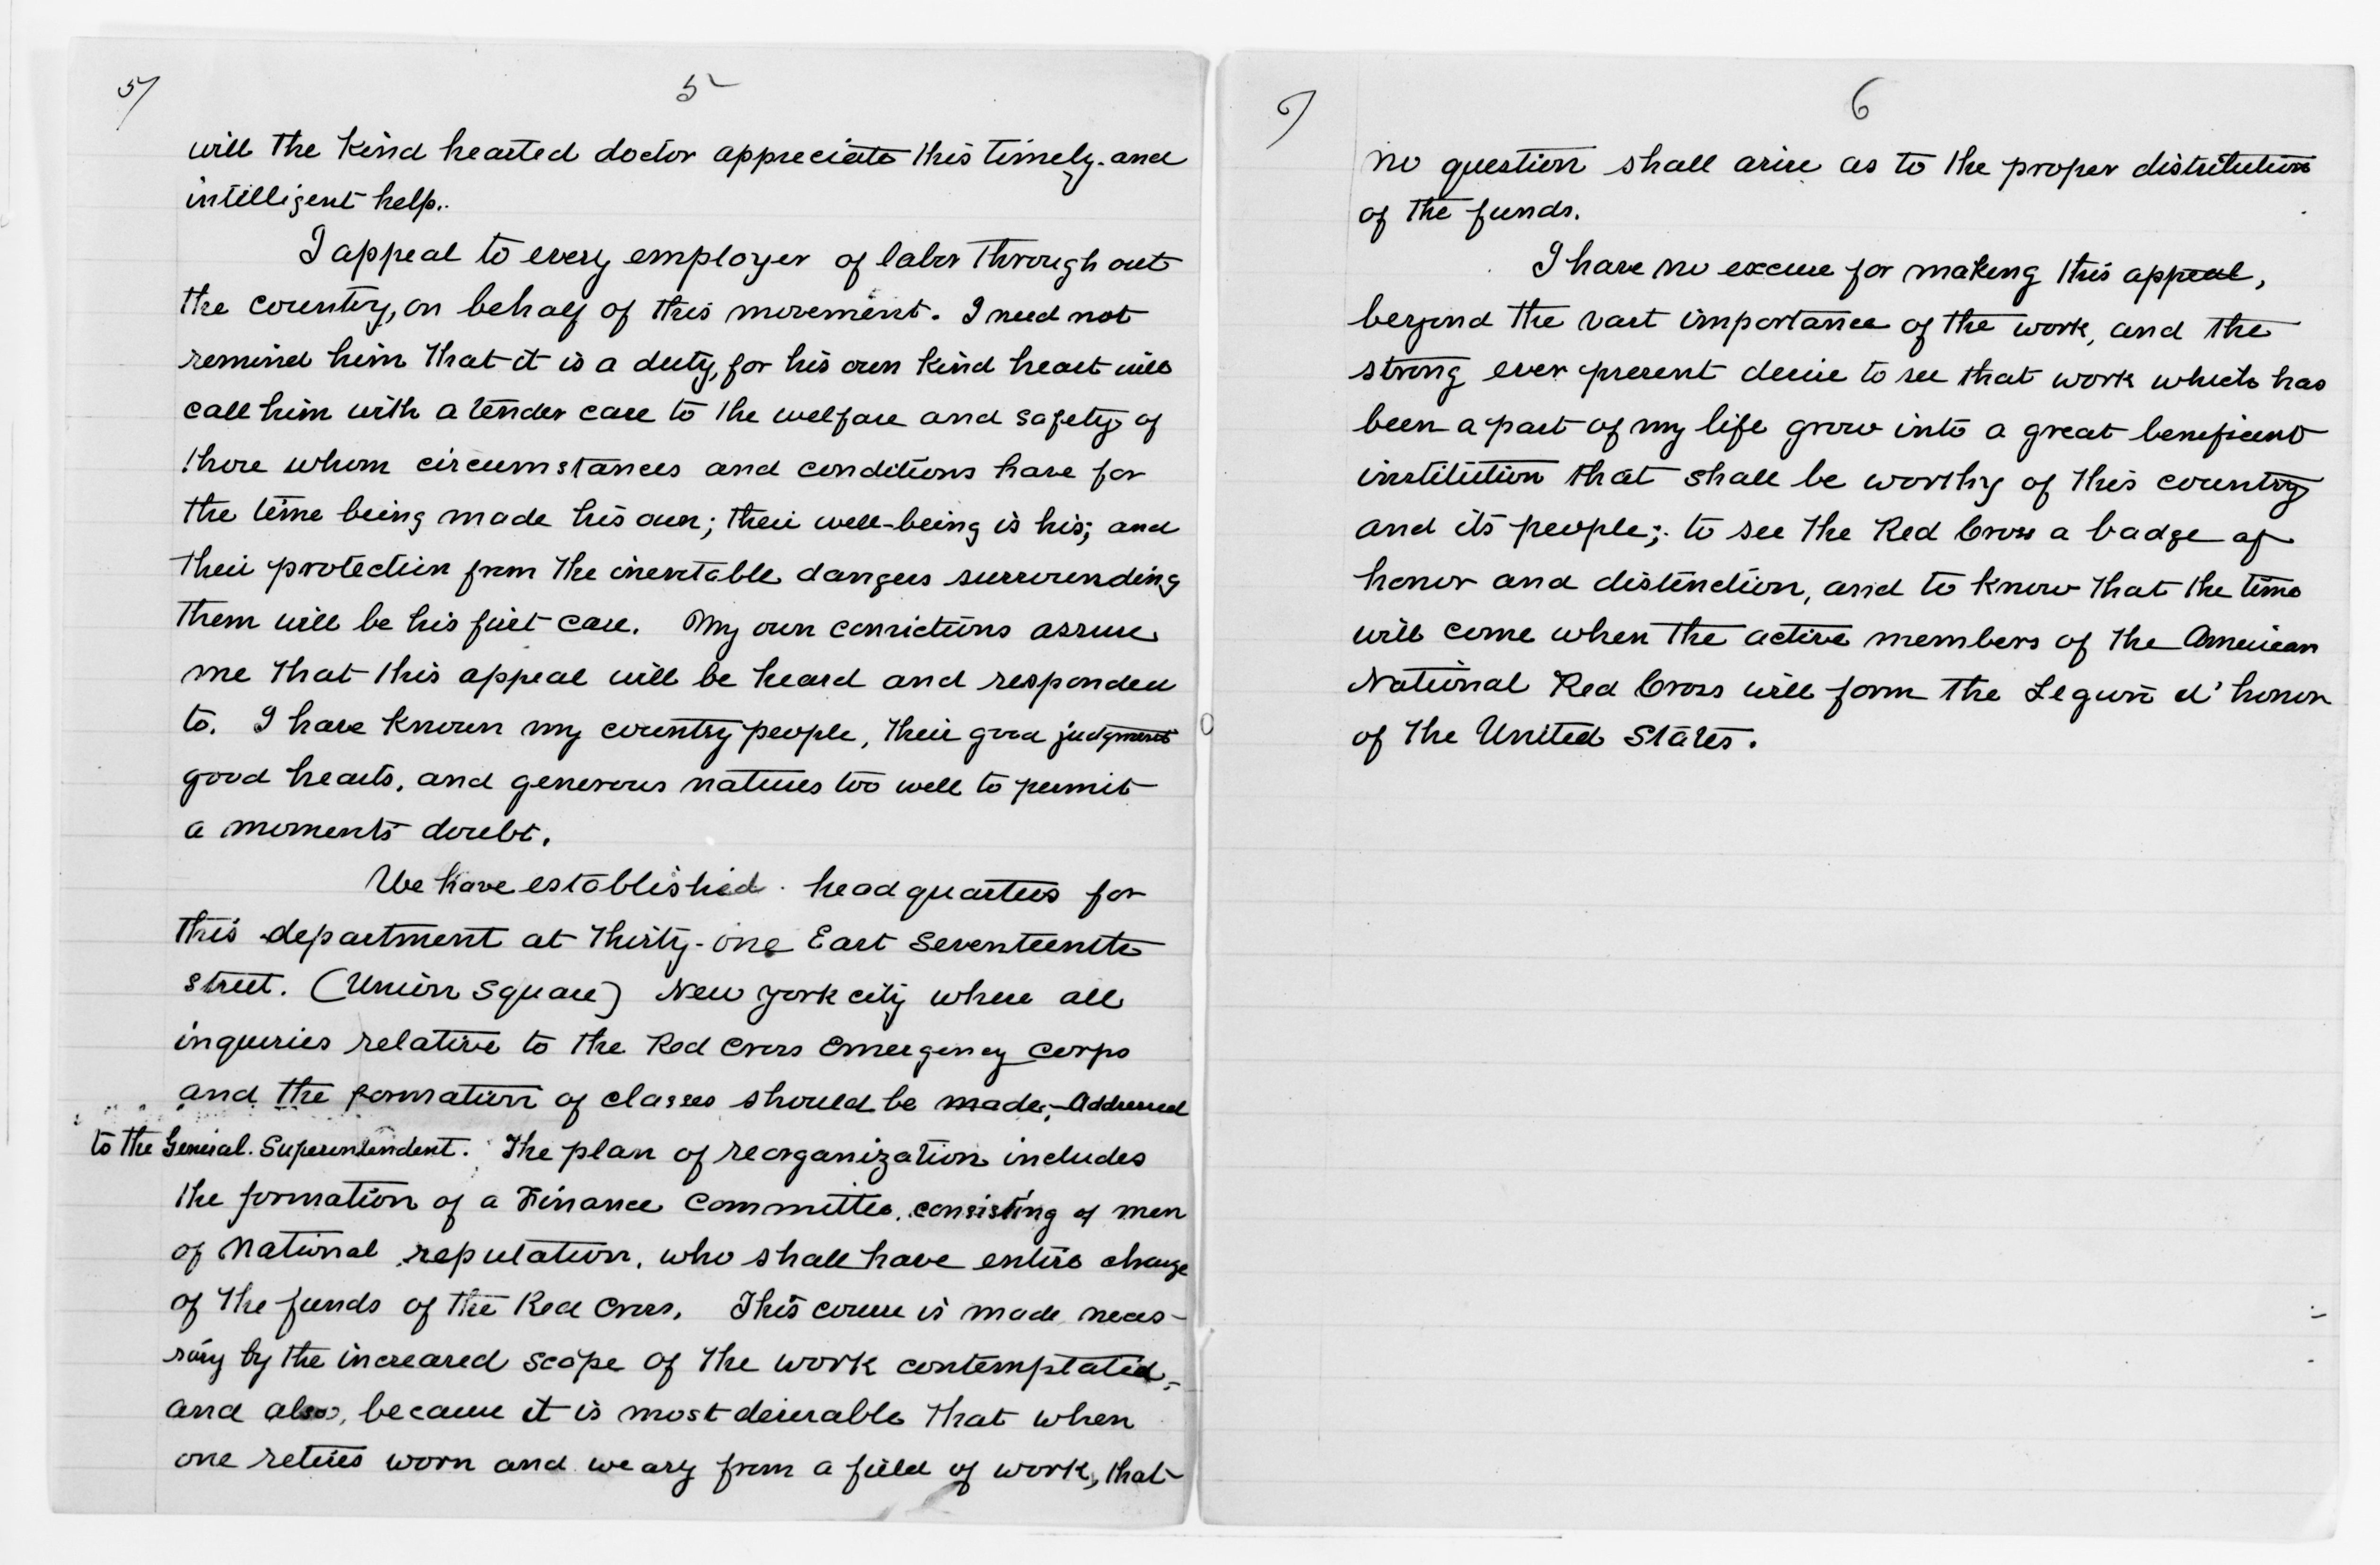 5/
5
will the kind hearted doctor appreciate this timely and
intelligent help.
I appeal to every employer of labor through out
the country, on behalf of this movement. I need not
remind him that it is a duty, for his own kind heart will
call him with a tender care to the welfare and safety of
those whom circumstances and conditions have for
the time being made his own; their well-being is his; and
their protection from the inevitable dangers surrounding
them will be his first care. My own convictions assure
me that this appeal will be heard and responded
to. I have known my country people, their good judgment
good hearts, and generous natures too well to permit
a moments doubt.
We have established headquarters for
this department at Thirty-one East Seventeenth
street. (Union Square) New York city where all
inquiries relative to the Red Cross Emergency Corps
and the formation of classes should be made, - Addressed
to the General Superintendent. The plan of reorganization includes
the formation of a Finance Committee, consisting of men
of National reputation, who shall have entire charge
of the funds of the Red Cross. This course is made neces-
sary by the increased scope of the work contemplated,
and also, because it is most desirable that when
one retires worn and weary from a field of work, that
6/
6
no question shall arise as to the proper distribution
of the funds.
I have no excuse for making this appeal,
beyond the vast importance of the work, and the
strong ever present desire to see that work which has
been a part of my life grow into a great beneficent
institution that shall be worthy of this country
and its people; to see the Red Cross a badge of
honor and distinction, and to know that the time
will come when the active members of the American
National Red Cross will form the Legion d'honor
of the United States.